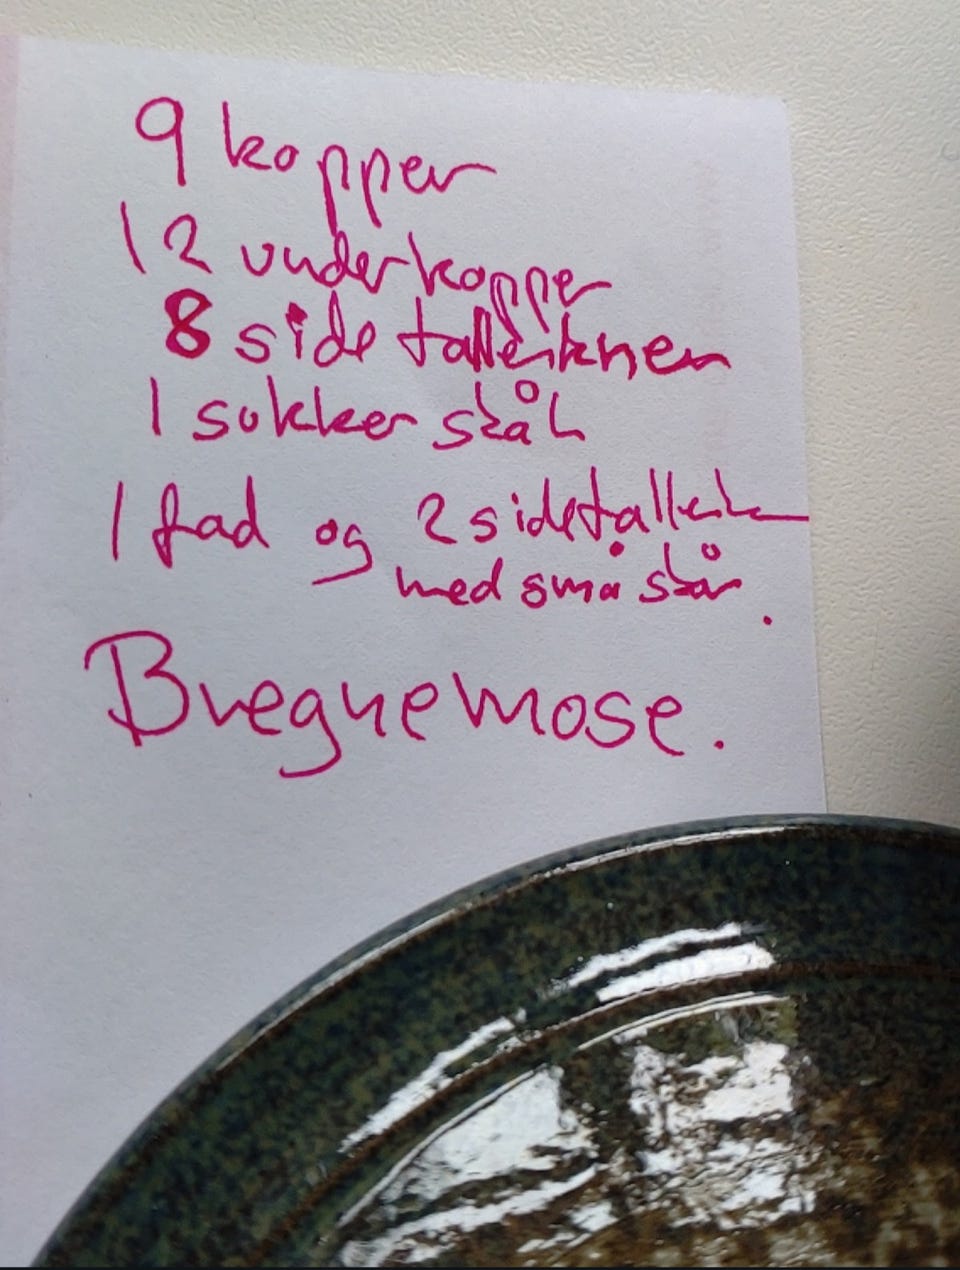 9 kopper
12 underkopper
8 side tallerknen
1 sukker skål
1 fad og 2 sidetallerken
med små skår.
Bregnemose.